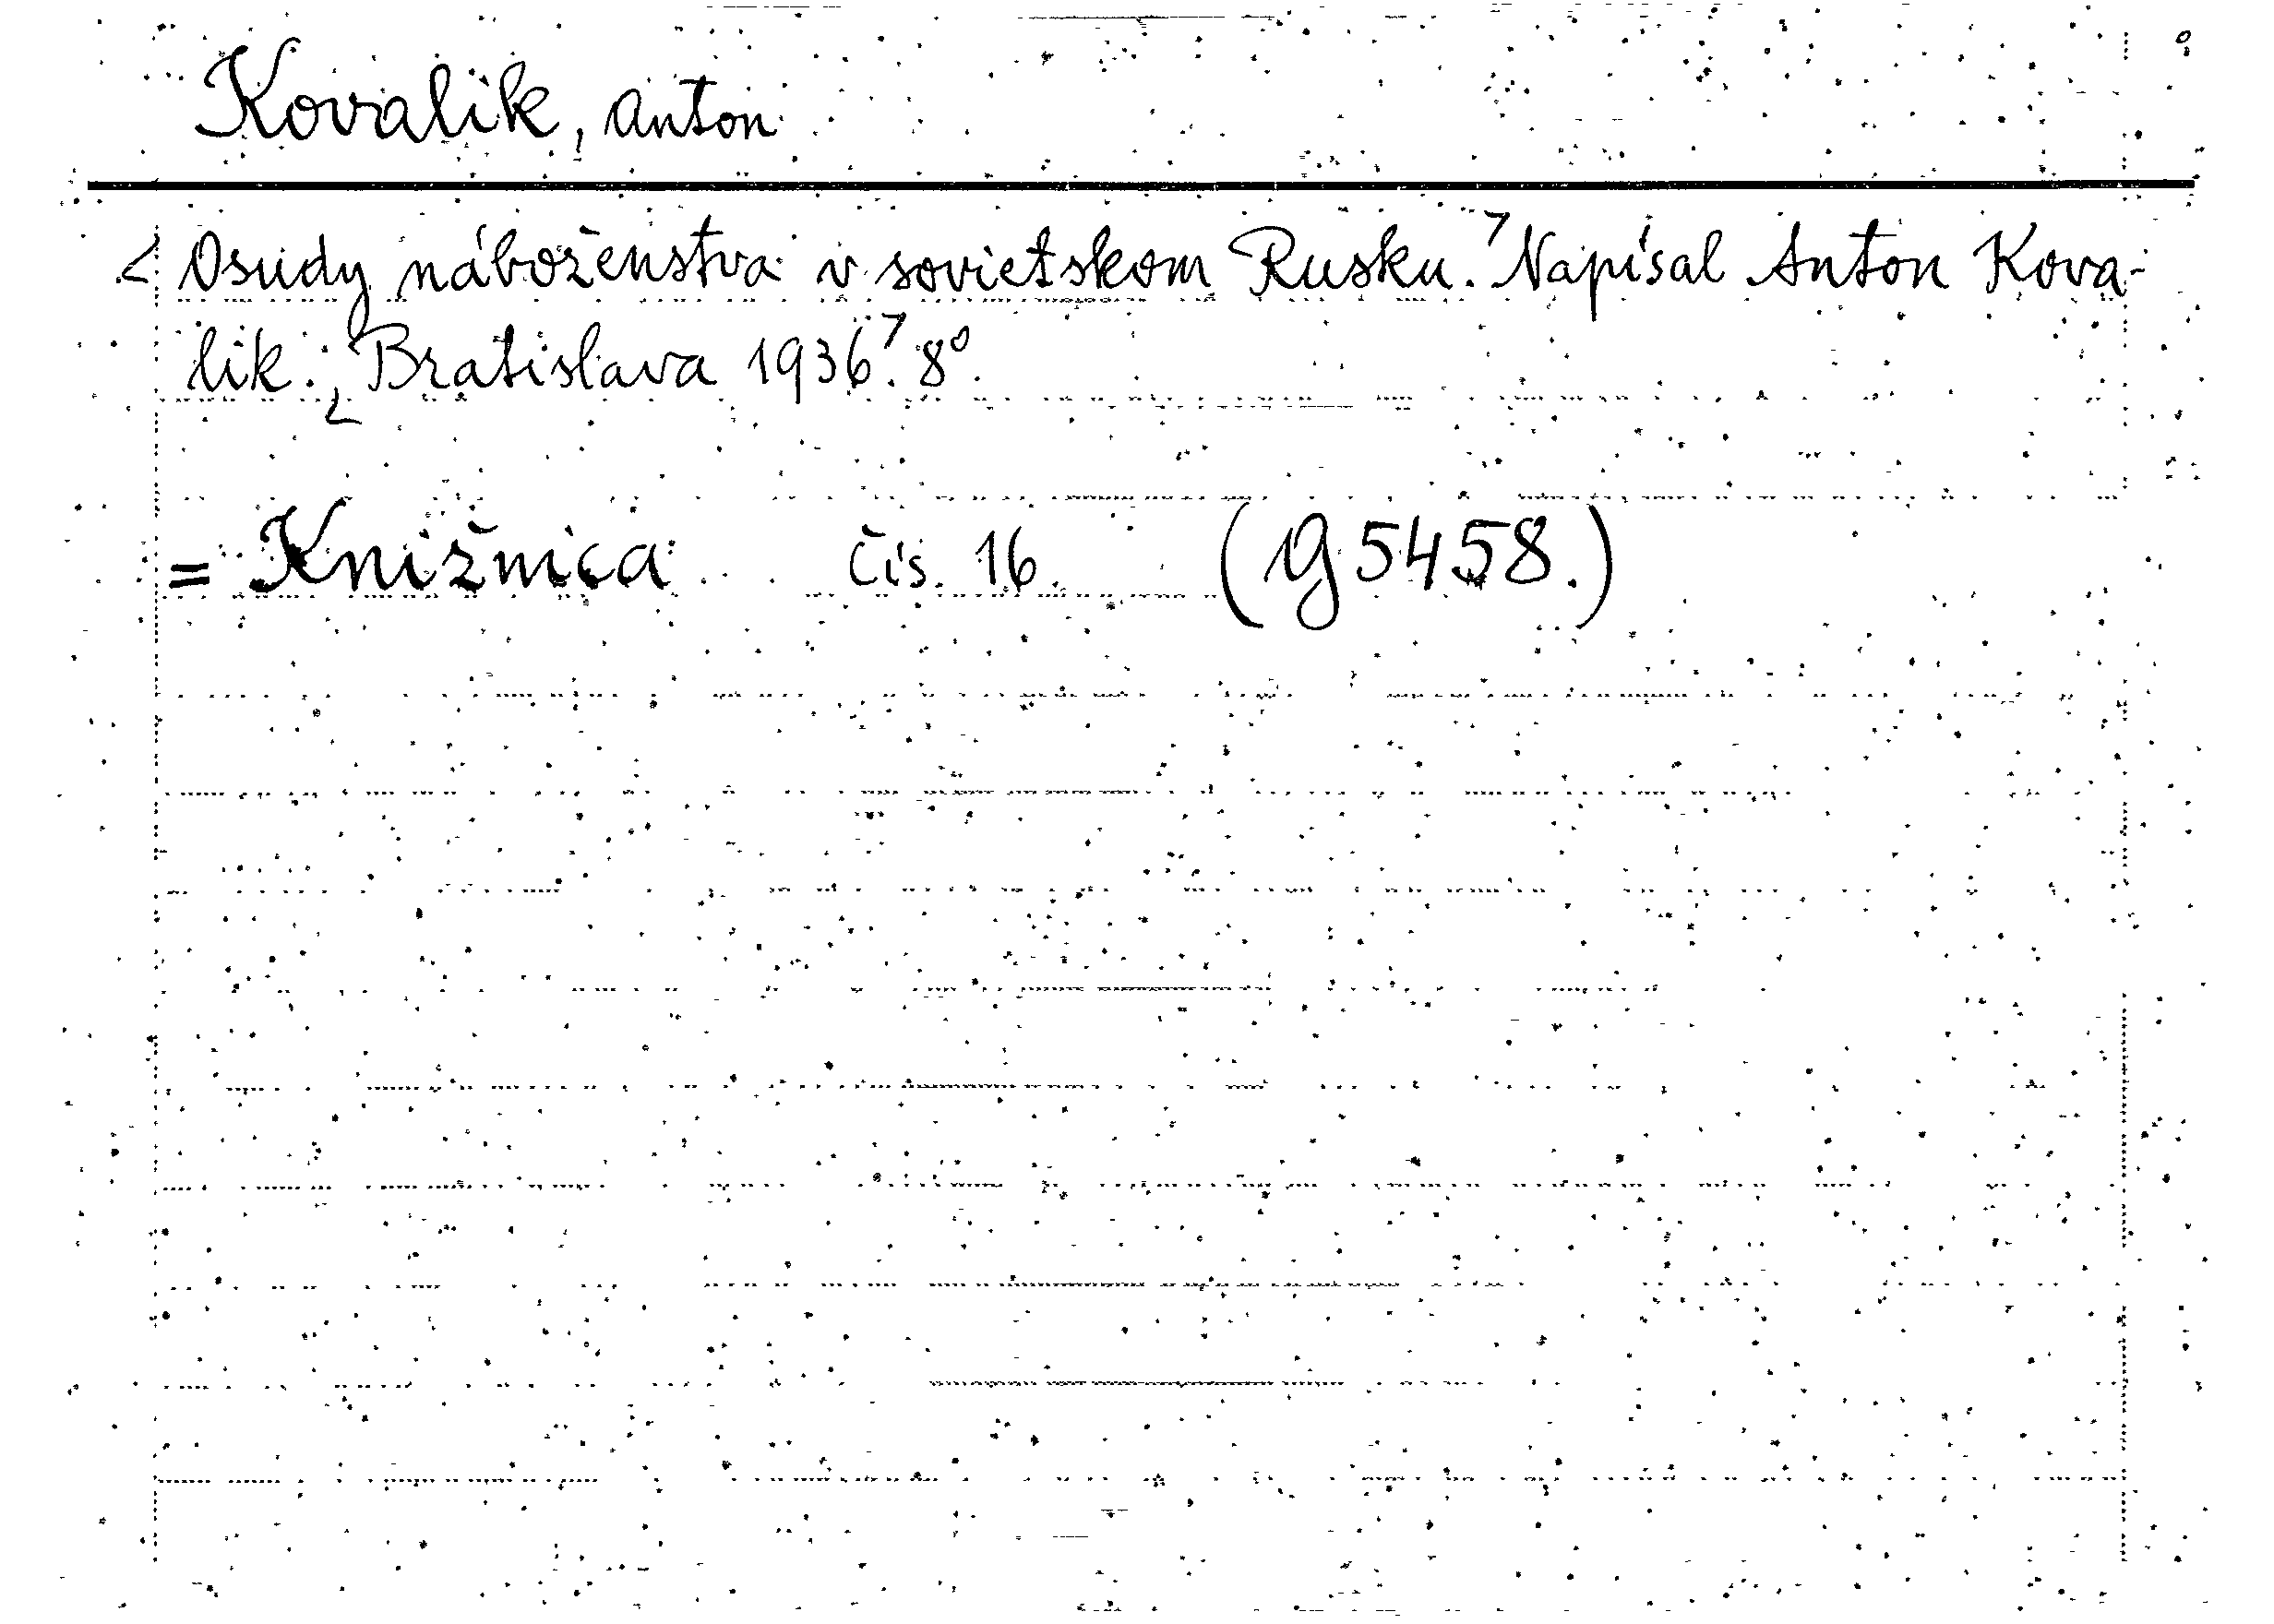 Kovalik, Anton
< Osudy náboženstva v sovietskom Rusku.> Napísal Anton Kova-
lik. <Bratislava 1936>. 8°.
= Knižnica . . . čís. 16. (G 5458.)